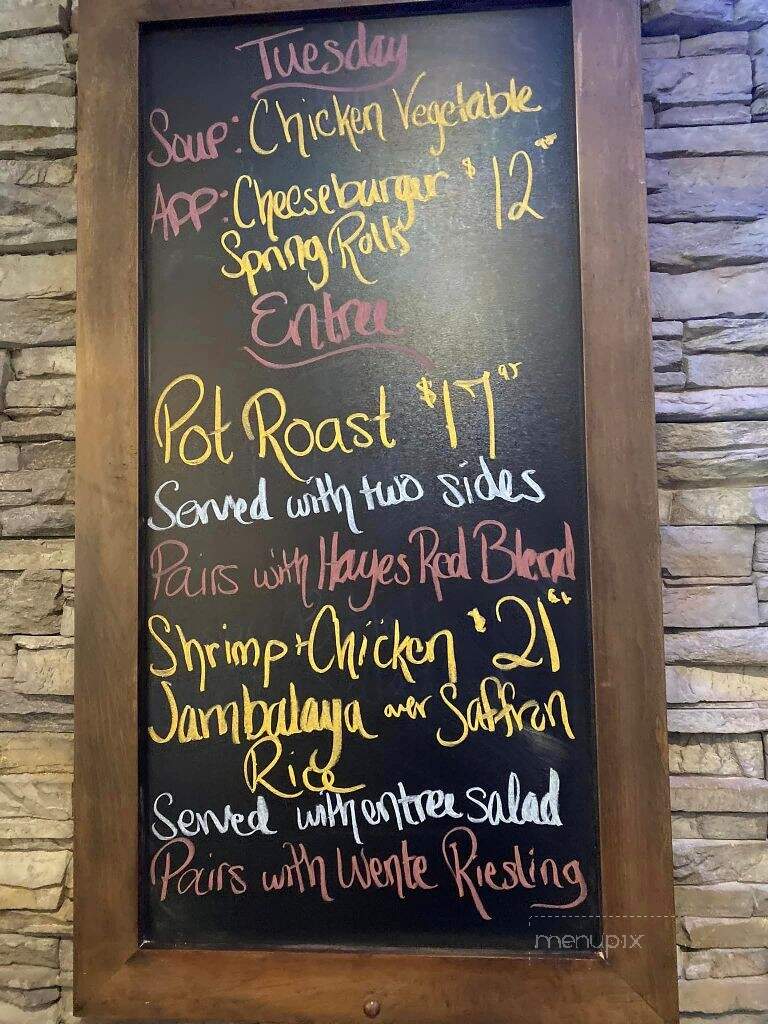 Tuesday
Soup: Chicken Vegetable
App: Cheeseburger $12.95
Spring Rolls
Entree
Pot Roast $17.95
Served with two sides
Pairs with Hayes Red Blend
Shrimp + Chicken $21
Jambalaya over Saffron
Rice
Served with entree salad
Pairs with Wente Riesling
menupix